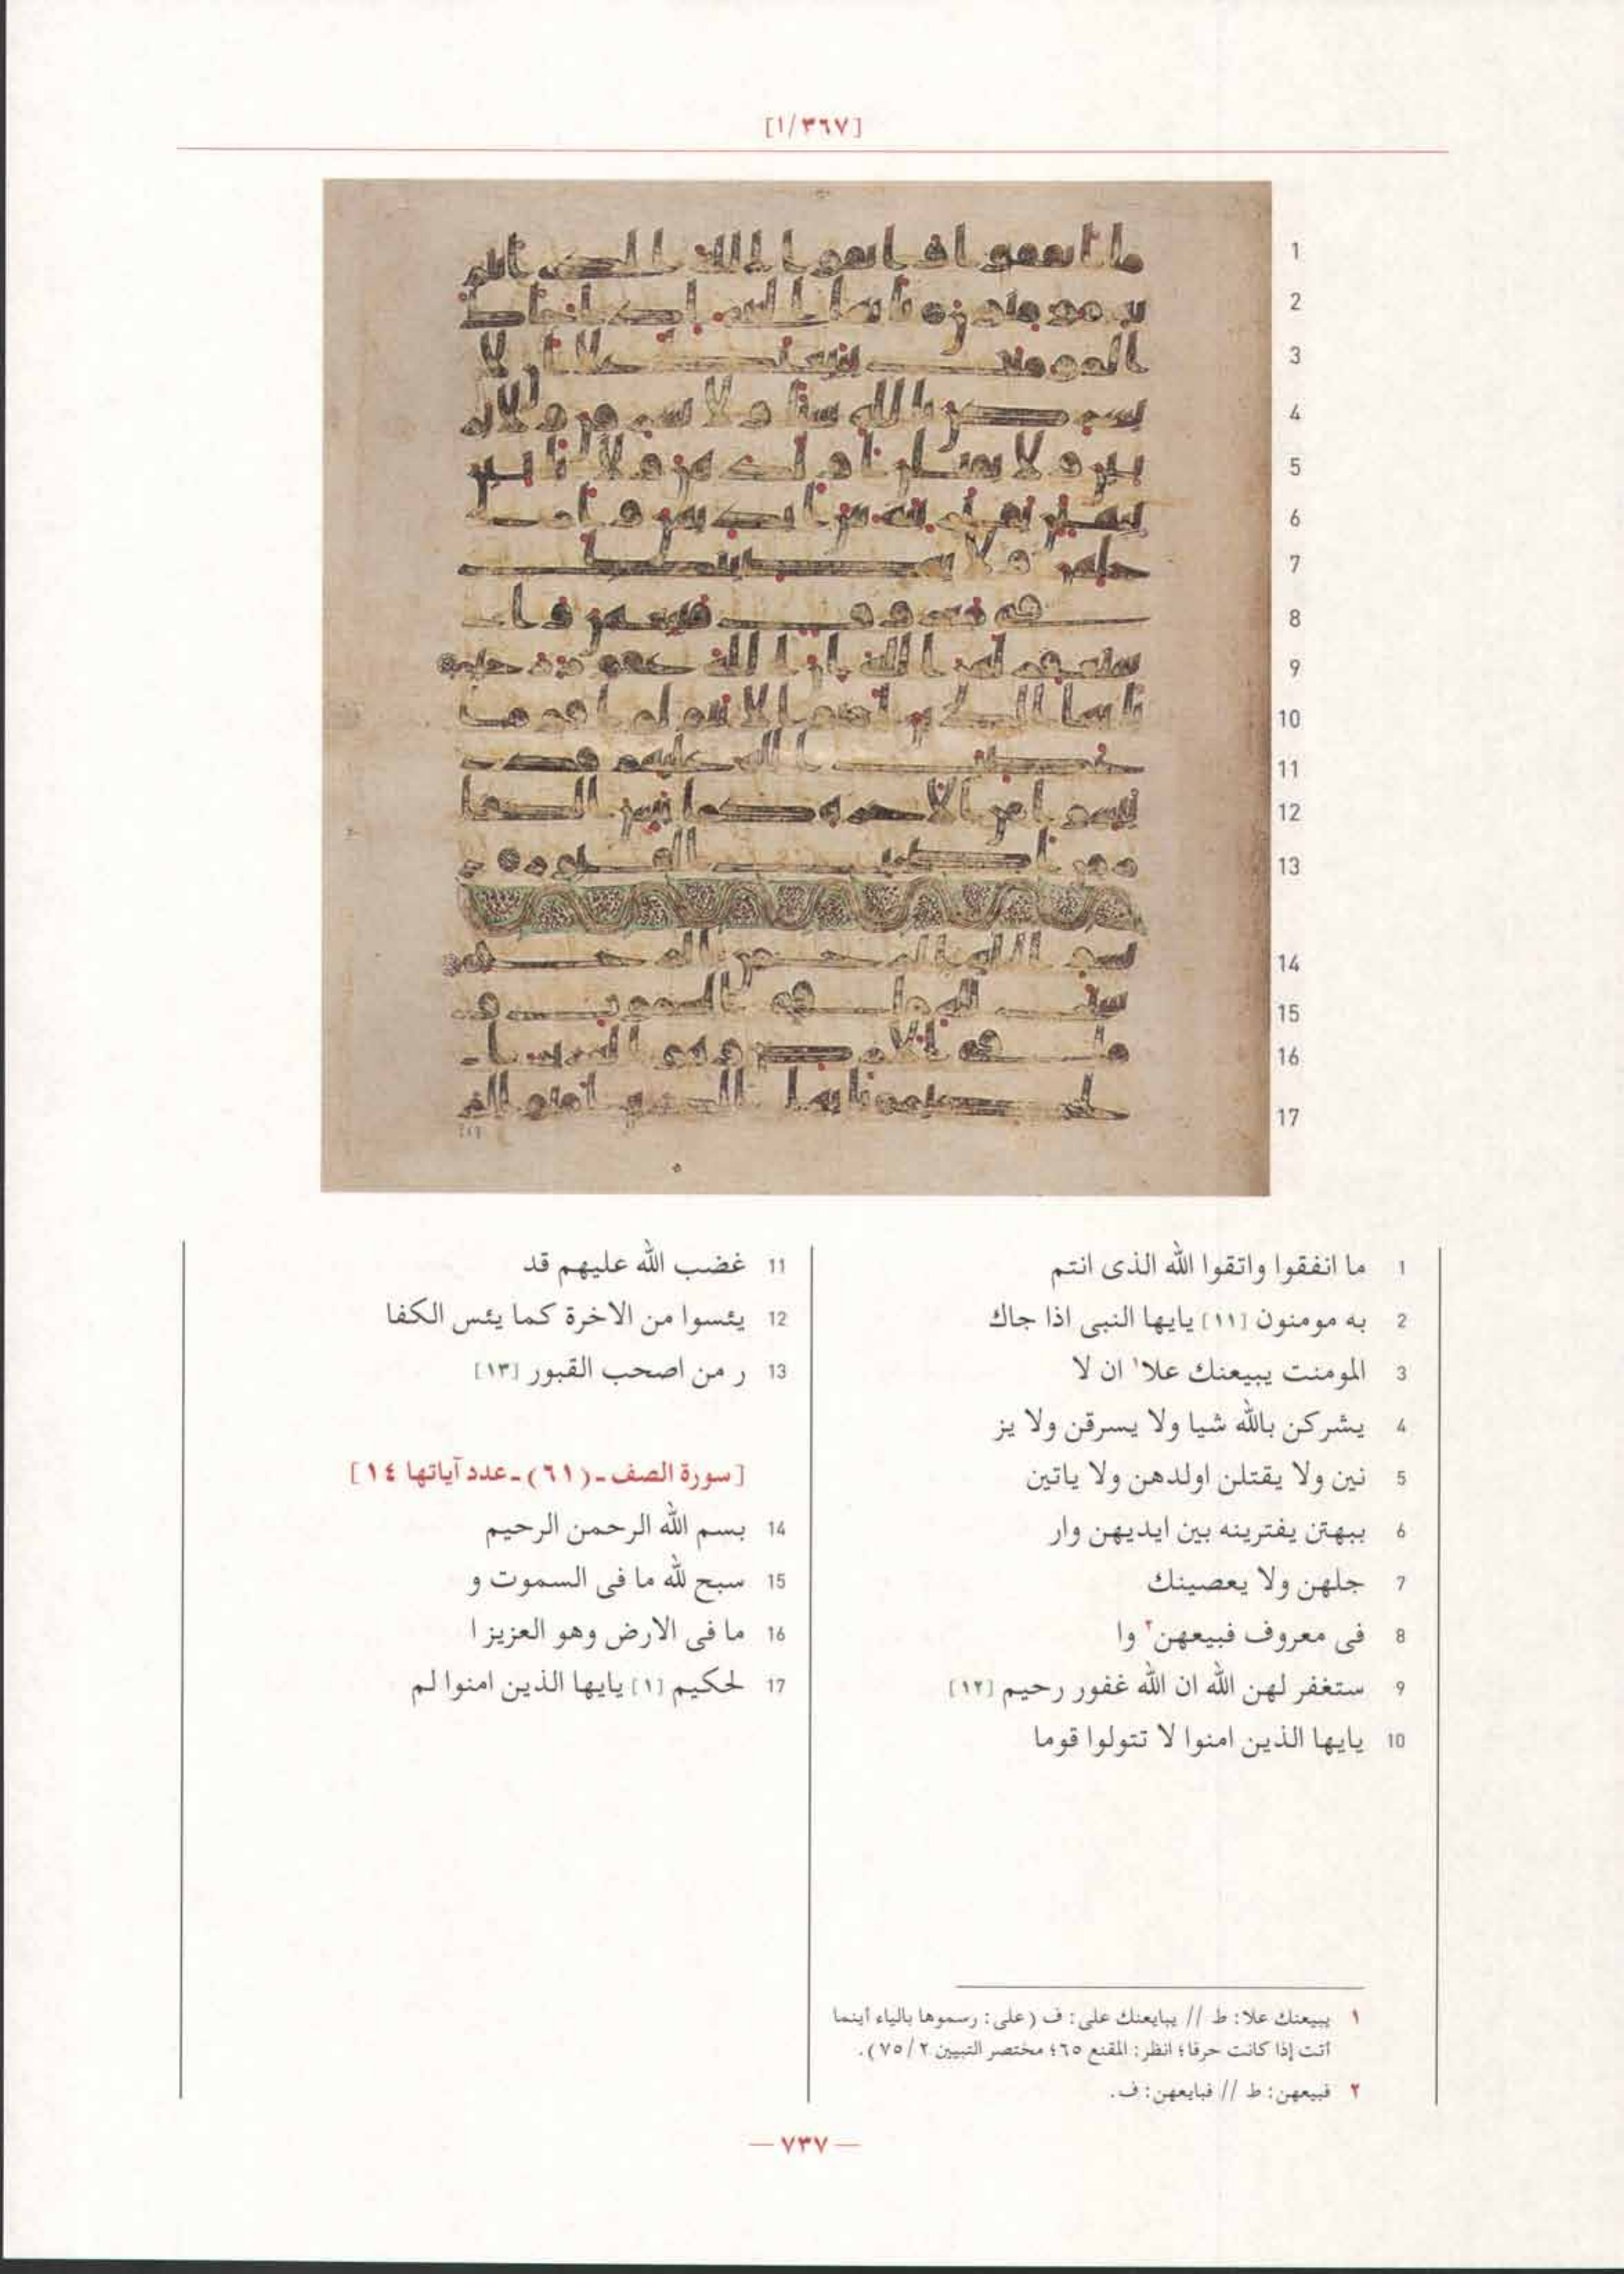 [١/٣٦٧]
1 ما انفقوا واتقوا الله الذى انتم
2 به مومنون [١١] يايها النبى اذا جاك
3 المومنت يبيعنك علا١ ان لا
4 يشركن بالله شيا ولا يسرقن ولا يز
5 نين ولا يقتلن اولدهن ولا ياتين
6 ببهتن يفترينه بين ايديهن وار
7 جلهن ولا يعصينك
8 فى معروف فبيعهن٢ وا
9 ستغفر لهن الله ان الله غفور رحيم [١٢]
10 يايها الذين امنوا لا تتولوا قوما
11 غضب الله عليهم قد
12 يئسوا من الاخرة كما يئس الكفا
13 ر من اصحب القبور [١٣]
[سورة الصف ـ (٦١) ـ عدد آياتها ١٤]
14 بسم الله الرحمن الرحيم
15 سبح لله ما فى السموت و
16 ما فى الارض وهو العزيز ا
17 لحكيم [١] يايها الذين امنوا لم
١ يبيعنك علا: ط // يبايعنك على: ف (على: رسموها بالياء أينما
أتت إذا كانت حرفا؛ انظر: المقنع ٦٥؛ مختصر التبيين ٧٥/٢).
٢ فبيعهن: ط // فبايعهن: ف.
— ٧٣٧ —